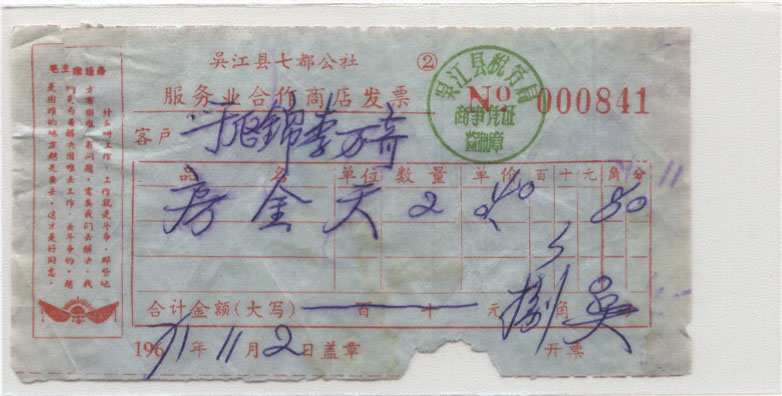 毛主席语录
什么叫工作,工作就是斗争。那些地
方有困难、有问题,需要我们去解决。我
们是为着解决困难去工作、去斗争的。越
是困难的地方越是要去,这才是好同志。
吳江县七都公社 ②
服务业合作商店发票 № 000841
吴江县税务局
商事凭证
监制章
客户 李万奇
品名 单位 数量 单价 百 十 元 角 分
房金 天 2 40 80
合计金额(大写) 百 十 元 捌角 吴
196 71年11月2日盖章 开票